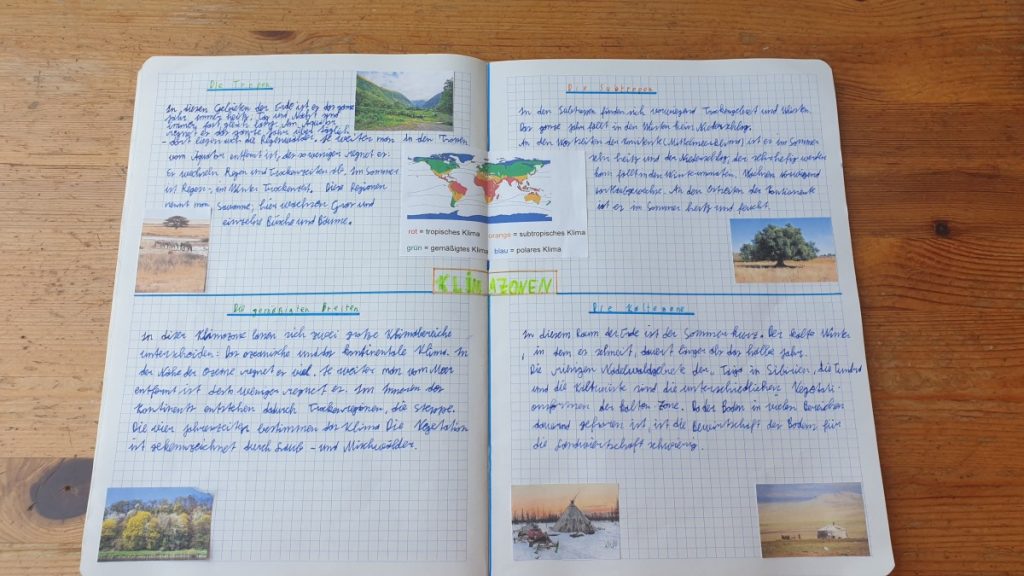 Die Tropen
In diesen Gebieten der Erde ist es das ganze
Jahr immer heiß. Tag und Nacht sind
immer fast gleich lang. Am Äquator
regnet es das ganze Jahr über täglich
- dort liegen auch die Regenwälder. Je weiter man in den Tropen
vom Äquator entfernt ist, desto weniger regnet es.
Es wechseln Regen und Trockenzeiten ab. Im Sommer
ist Regen-, im Winter Trockenzeit. Diese Regionen
nennt man Savanne, hier wachsen Gras und
einzelne Büsche und Bäume.
Die Subtropen
In den Subtropen finden sich vorwiegend Trockengebiet und Wüsten.
Das ganze Jahr fällt in den Wüsten kein Niederschlag.
In den Westseiten der (Mittelmeerklima) ist es im Sommer
sehr heiß und der Niederschlag, der sehr heftig werden
kann fällt in den Wintermonaten. Wachsen vorwiegend
Hartlaubgewächse. An den Ostseiten der Kontinente
ist es im Sommer heiß und feucht.
rot = tropisches Klima
orange = subtropisches Klima
grün = gemäßigtes Klima
blau = polares Klima
KLIMAZONEN
Die gemäßigten Breiten
In dieser Klimazone lassen sich zwei große Klimabereiche
unterscheiden: Das ozeanische und das kontinentale Klima. In
der Nähe der Ozeane regnet es viel. Je weiter man vom Meer
entfernt ist desto weniger regnet es. Im Inneren der
Kontinente entstehen dadurch Trockenregionen, die Steppe.
Die vier Jahreszeiten bestimmen das Klima. Die Vegetation
ist gekennzeichnet durch Laub- und Mischwälder.
Die Kaltezone
In diesem Raum der Erde ist der Sommer kurz. Der kalte Winter
, in dem es schneit, dauert länger als das halbe Jahr.
Die riesigen Nadelwaldgebiete der, Taiga in Sibirien, die Tundra
und die Kältwüste sind die unterschiedlichen Vegetati-
onsformen der kalten Zone. Da der Boden in vielen Bereichen
dauernd gefroren ist, ist die Bewirtschaft des Bodens für
die Landwirtschaft schwierig.